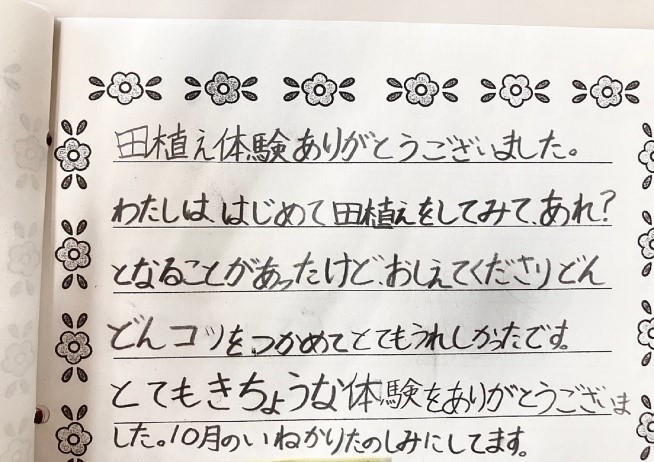 田植え体験ありがとうございました。
わたしは、はじめて田植えをしてみて、あれ?
となることがあったけど、おしえてくださりどん
どんコツを、つかめてとてもうれしかったです。
とてもきちょうな体験をありがとうございま
した。10月のいねかりたのしみにしてます。